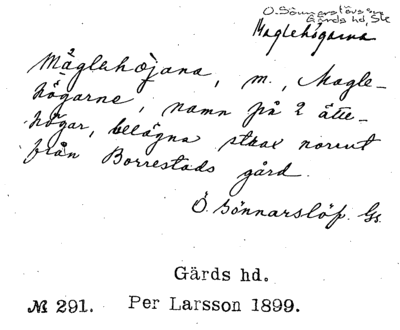 Ö. Sönnarslövs sn
Gärds hd, Sk
Maglehögarna
Mâglehøjana, m., Magle-
högarne, namn på 2 ätte-
högar, belägna strax norrut
från Borrestads gård.
Ö. Sönnarslöf. Gs.
Gärds hd.
№ 291. Per Larsson 1899.